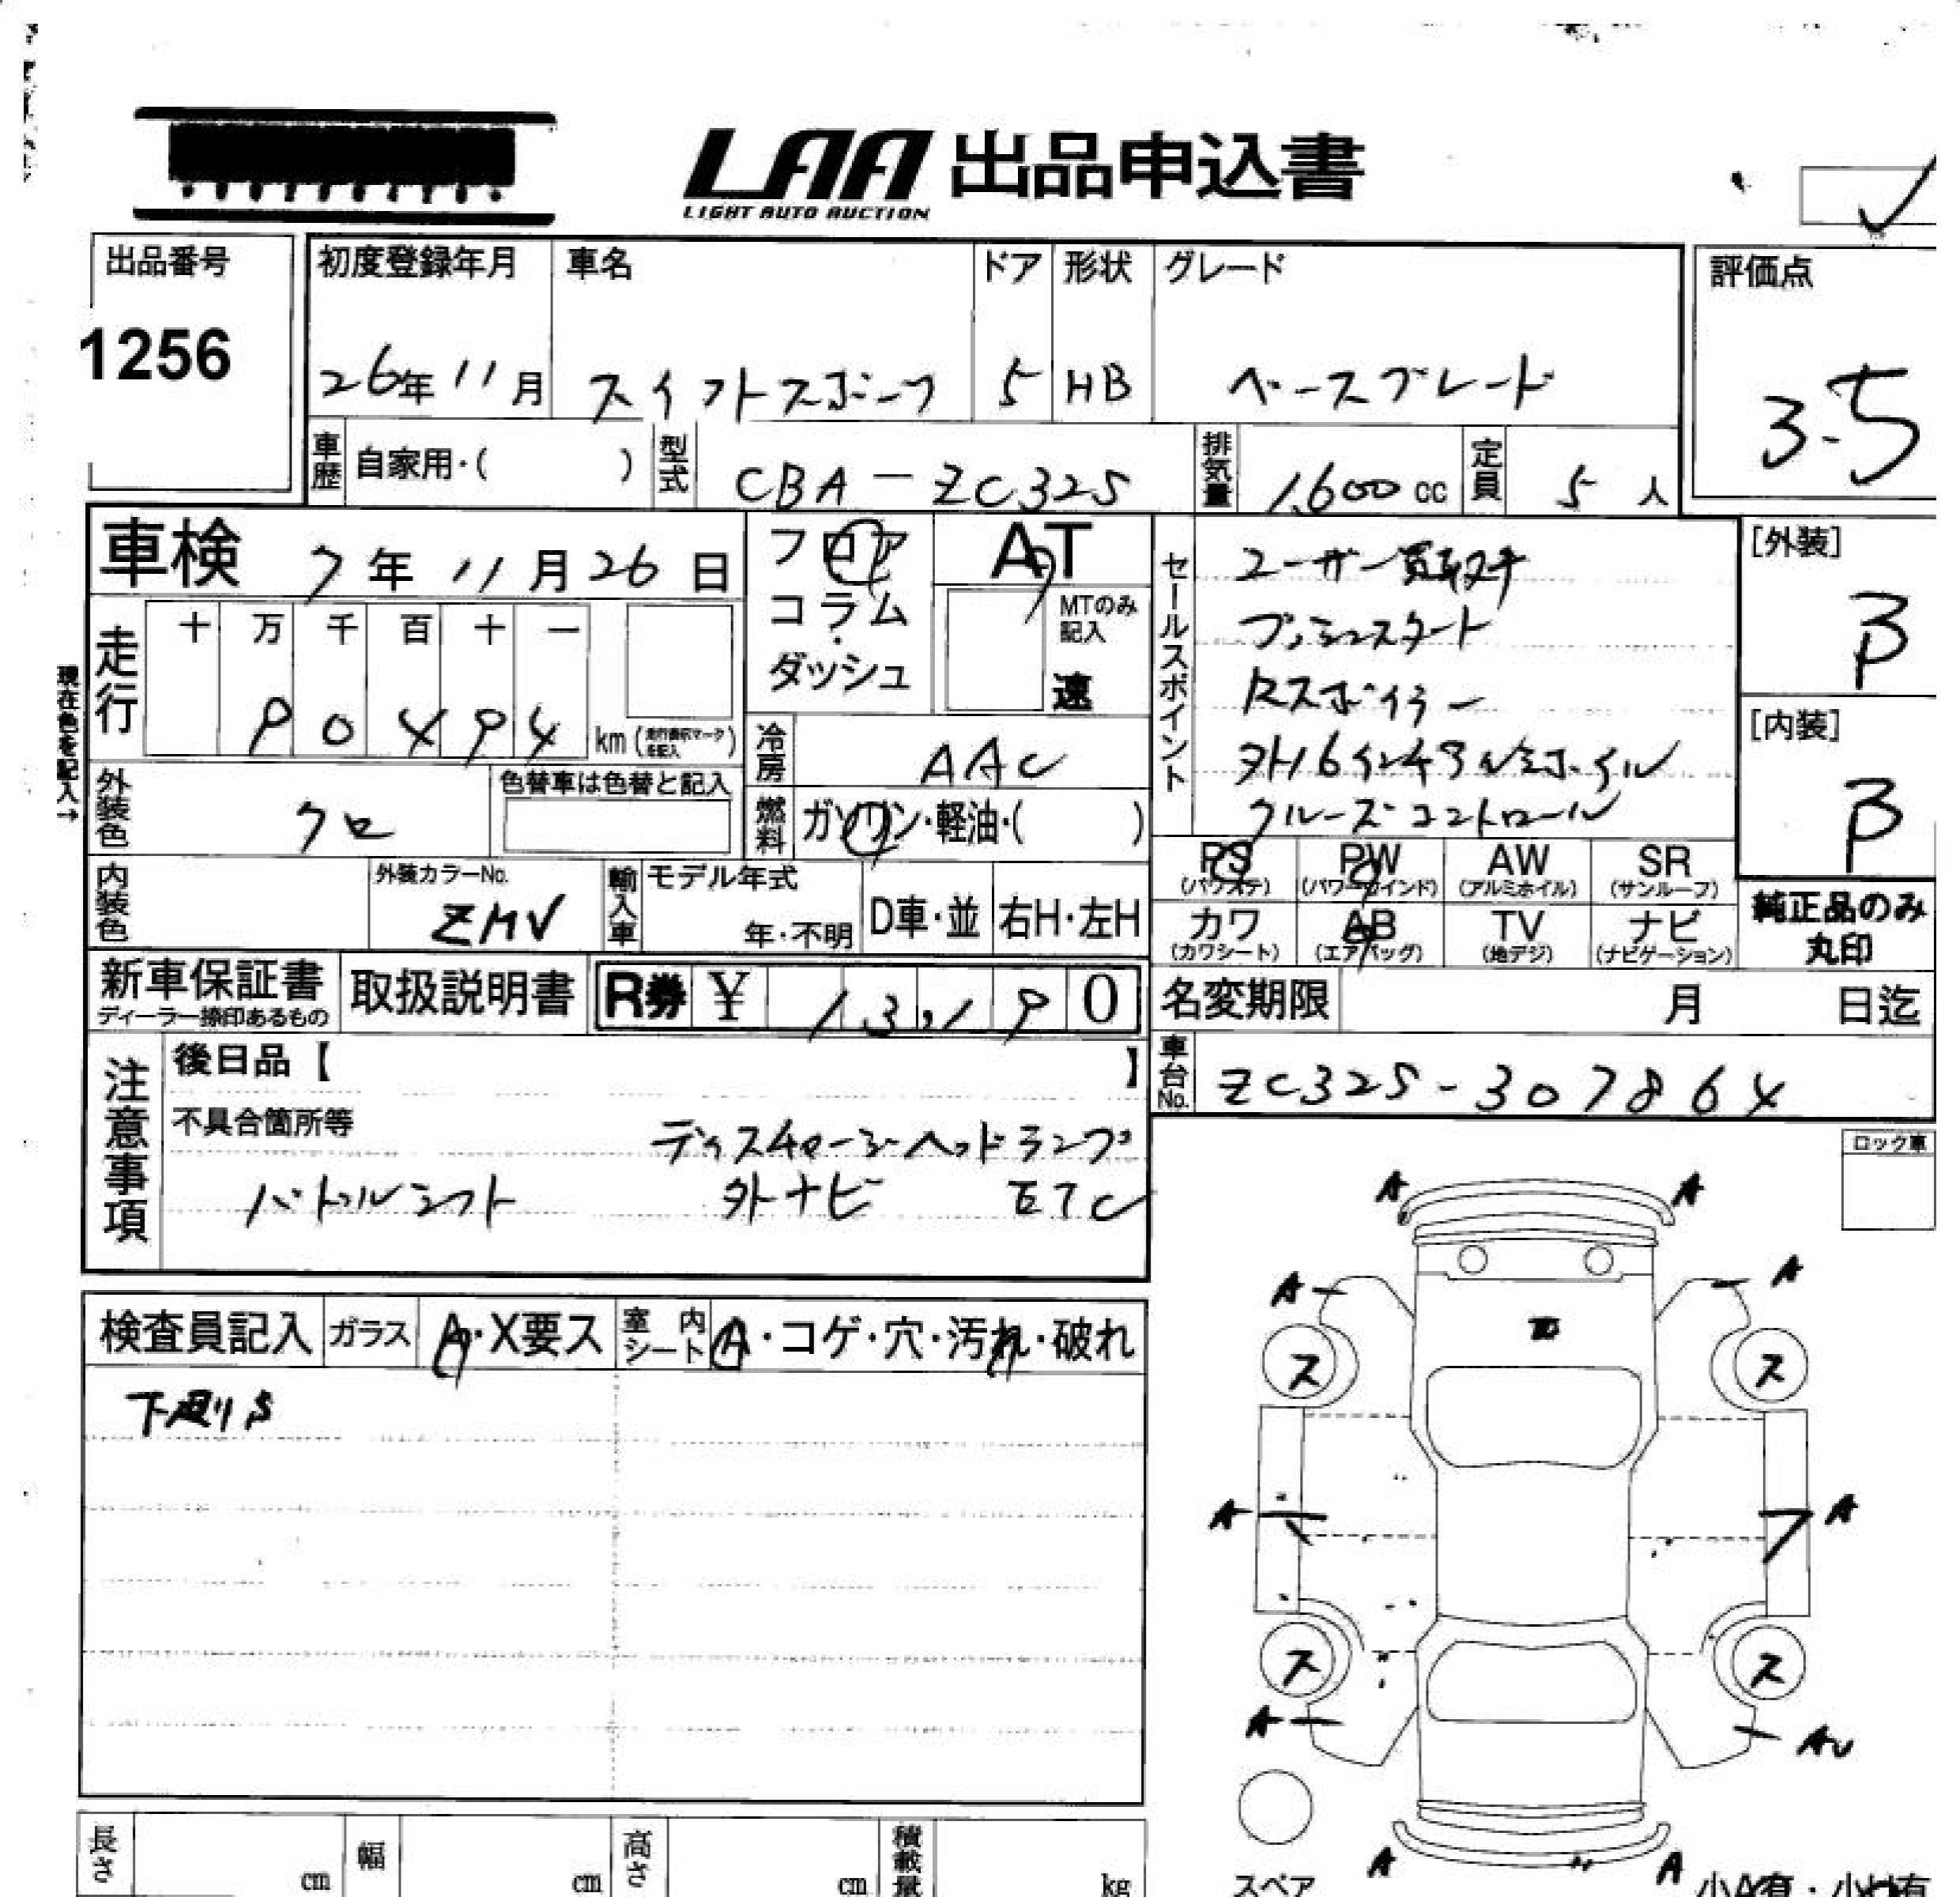 LAA 出品申込書
LIGHT AUTO AUCTION
出品番号
1256
初度登録年月 車名 ドア 形状 グレード
26年 11月 スイフトスポーツ 5 HB ベースグレード
評価点
3.5
車歴 自家用・( ) 型式 CBA-ZC32S 排気量 1,600 cc 定員 5 人
車検 7年 11月 26日
フロア
コラム
・
ダッシュ
AT
MTのみ記入
速
走行 十 万 千 百 十 一
90494 km (走行表示マークを記入)
現在色を記入→
冷房 AAC
外装色 クロ 色替車は色替と記入
燃料 ガソリン・軽油・( )
内装色 外装カラーNo.
ZMV
輸入車 モデル年式
年・不明 D車・並 右H・左H
セールスポイント
ユーザー買取車
プッシュスタート
Rスポイラー
外16インチアルミホイル
クルーズコントロール
[外装]
B
[内装]
B
PS PW AW SR
(パワステ) (パワーウインド) (アルミホイル) (サンルーフ)
カワ AB TV ナビ
(カワシート) (エアバッグ) (地デジ) (ナビゲーション)
純正品のみ
丸印
新車保証書
ディーラー捺印あるもの
取扱説明書 R券 ¥ 13,190
名変期限 月 日迄
車台No. ZC32S-307864
注意事項
後日品【 】
不具合箇所等
ディスチャージヘッドランプ
パドルシフト 外ナビ ETC
ロック車
検査員記入 ガラス A・X要ス 室内シート A・コゲ・穴・汚れ・破れ
下廻りS
A A
A A
ス ス
A A
ス ス
A AU
A A
スペア
小A有・小U有
長さ cm 幅 cm 高さ cm 積載量 kg